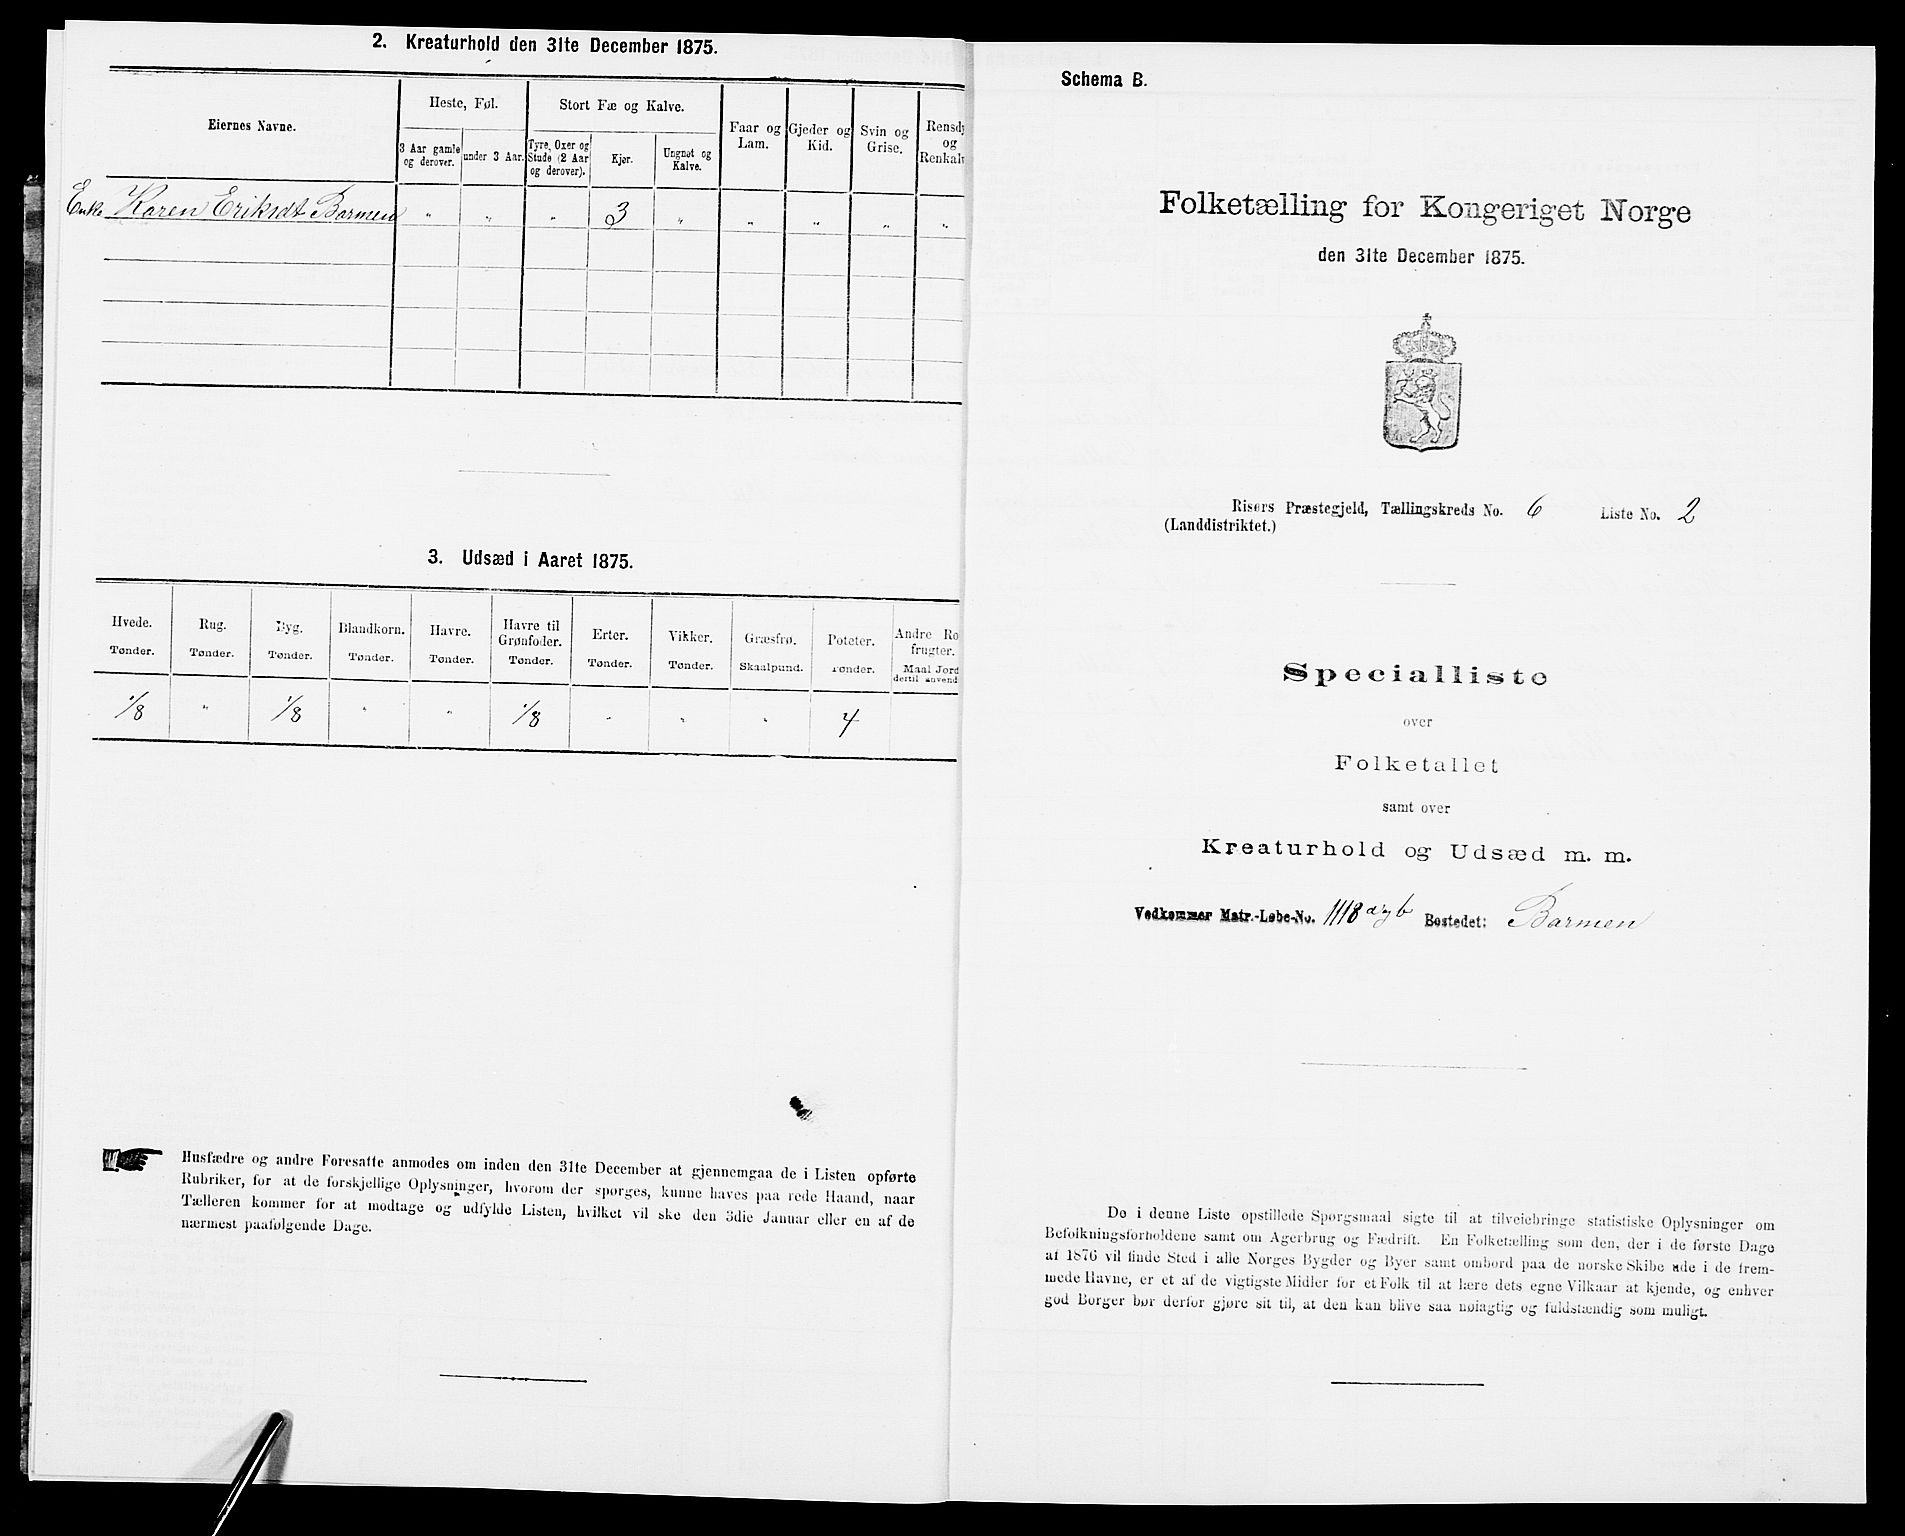 2. Kreaturhold den 31te December 1875.
Eiernes Navne.
Heste, Føl.
3 Aar gamle og derover.
under 3 Aar.
Stort Fæ og Kalve.
Tyre, Oxer og Stude (2 Aar og derover).
Kjør.
Ungnøt og Kalve.
Faar og Lam.
Gjeder og Kid.
Svin og Grise.
Rensdy
og
Renkalv
Enke Karen Eriksdt Barmen " " " 3 " " " " "
3. Udsæd i Aaret 1875.
Hvede. Tønder.
Rug. Tønder.
Byg. Tønder.
Blandkorn. Tønder.
Havre. Tønder.
Havre til Grønfoder. Tønder.
Erter. Tønder.
Vikker. Tønder.
Græsfrø. Skaalpund.
Poteter. Tønder.
Andre Ro
frugter.
Maal Jord
dertil anvend
1/8 " 1/8 " " 1/8 " " " 4
Husfædre og andre Foresatte anmodes om inden den 31te December at gjennemgaa de i Listen opførte
Rubriker, for at de forskjellige Oplysninger, hvorom der spørges, kunne haves paa rede Haand, naar
Tælleren kommer for at modtage og udfylde Listen, hvilket vil ske den 3die Januar eller en af de
nærmest paafølgende Dage.
Schema B.
Folketælling for Kongeriget Norge
den 31te December 1875.
Risørs Præstegjeld, Tællingskreds No. 6 Liste No. 2
(Landdistriktet.)
Specialliste
over
Folketallet
samt over
Kreaturhold og Udsæd m. m.
Vedkommer Matr.-Løbe-No. 1118 Bostedet: Barmen
De i denne Liste opstillede Spørgsmaal sigte til at tilveiebringe statistiske Oplysninger om
Befolkningsforholdene samt om Agerbrug og Fædrift. En Folketælling som den, der i de første Dage
af 1876 vil finde Sted i alle Norges Bygder og Byer samt ombord paa de norske Skibe ude i de frem-
mede Havne, er et af de vigtigste Midler for et Folk til at lære dets egne Vilkaar at kjende, og enhver
god Borger bør derfor gjøre sit til, at den kan blive saa nøiagtig og fuldstændig som muligt.